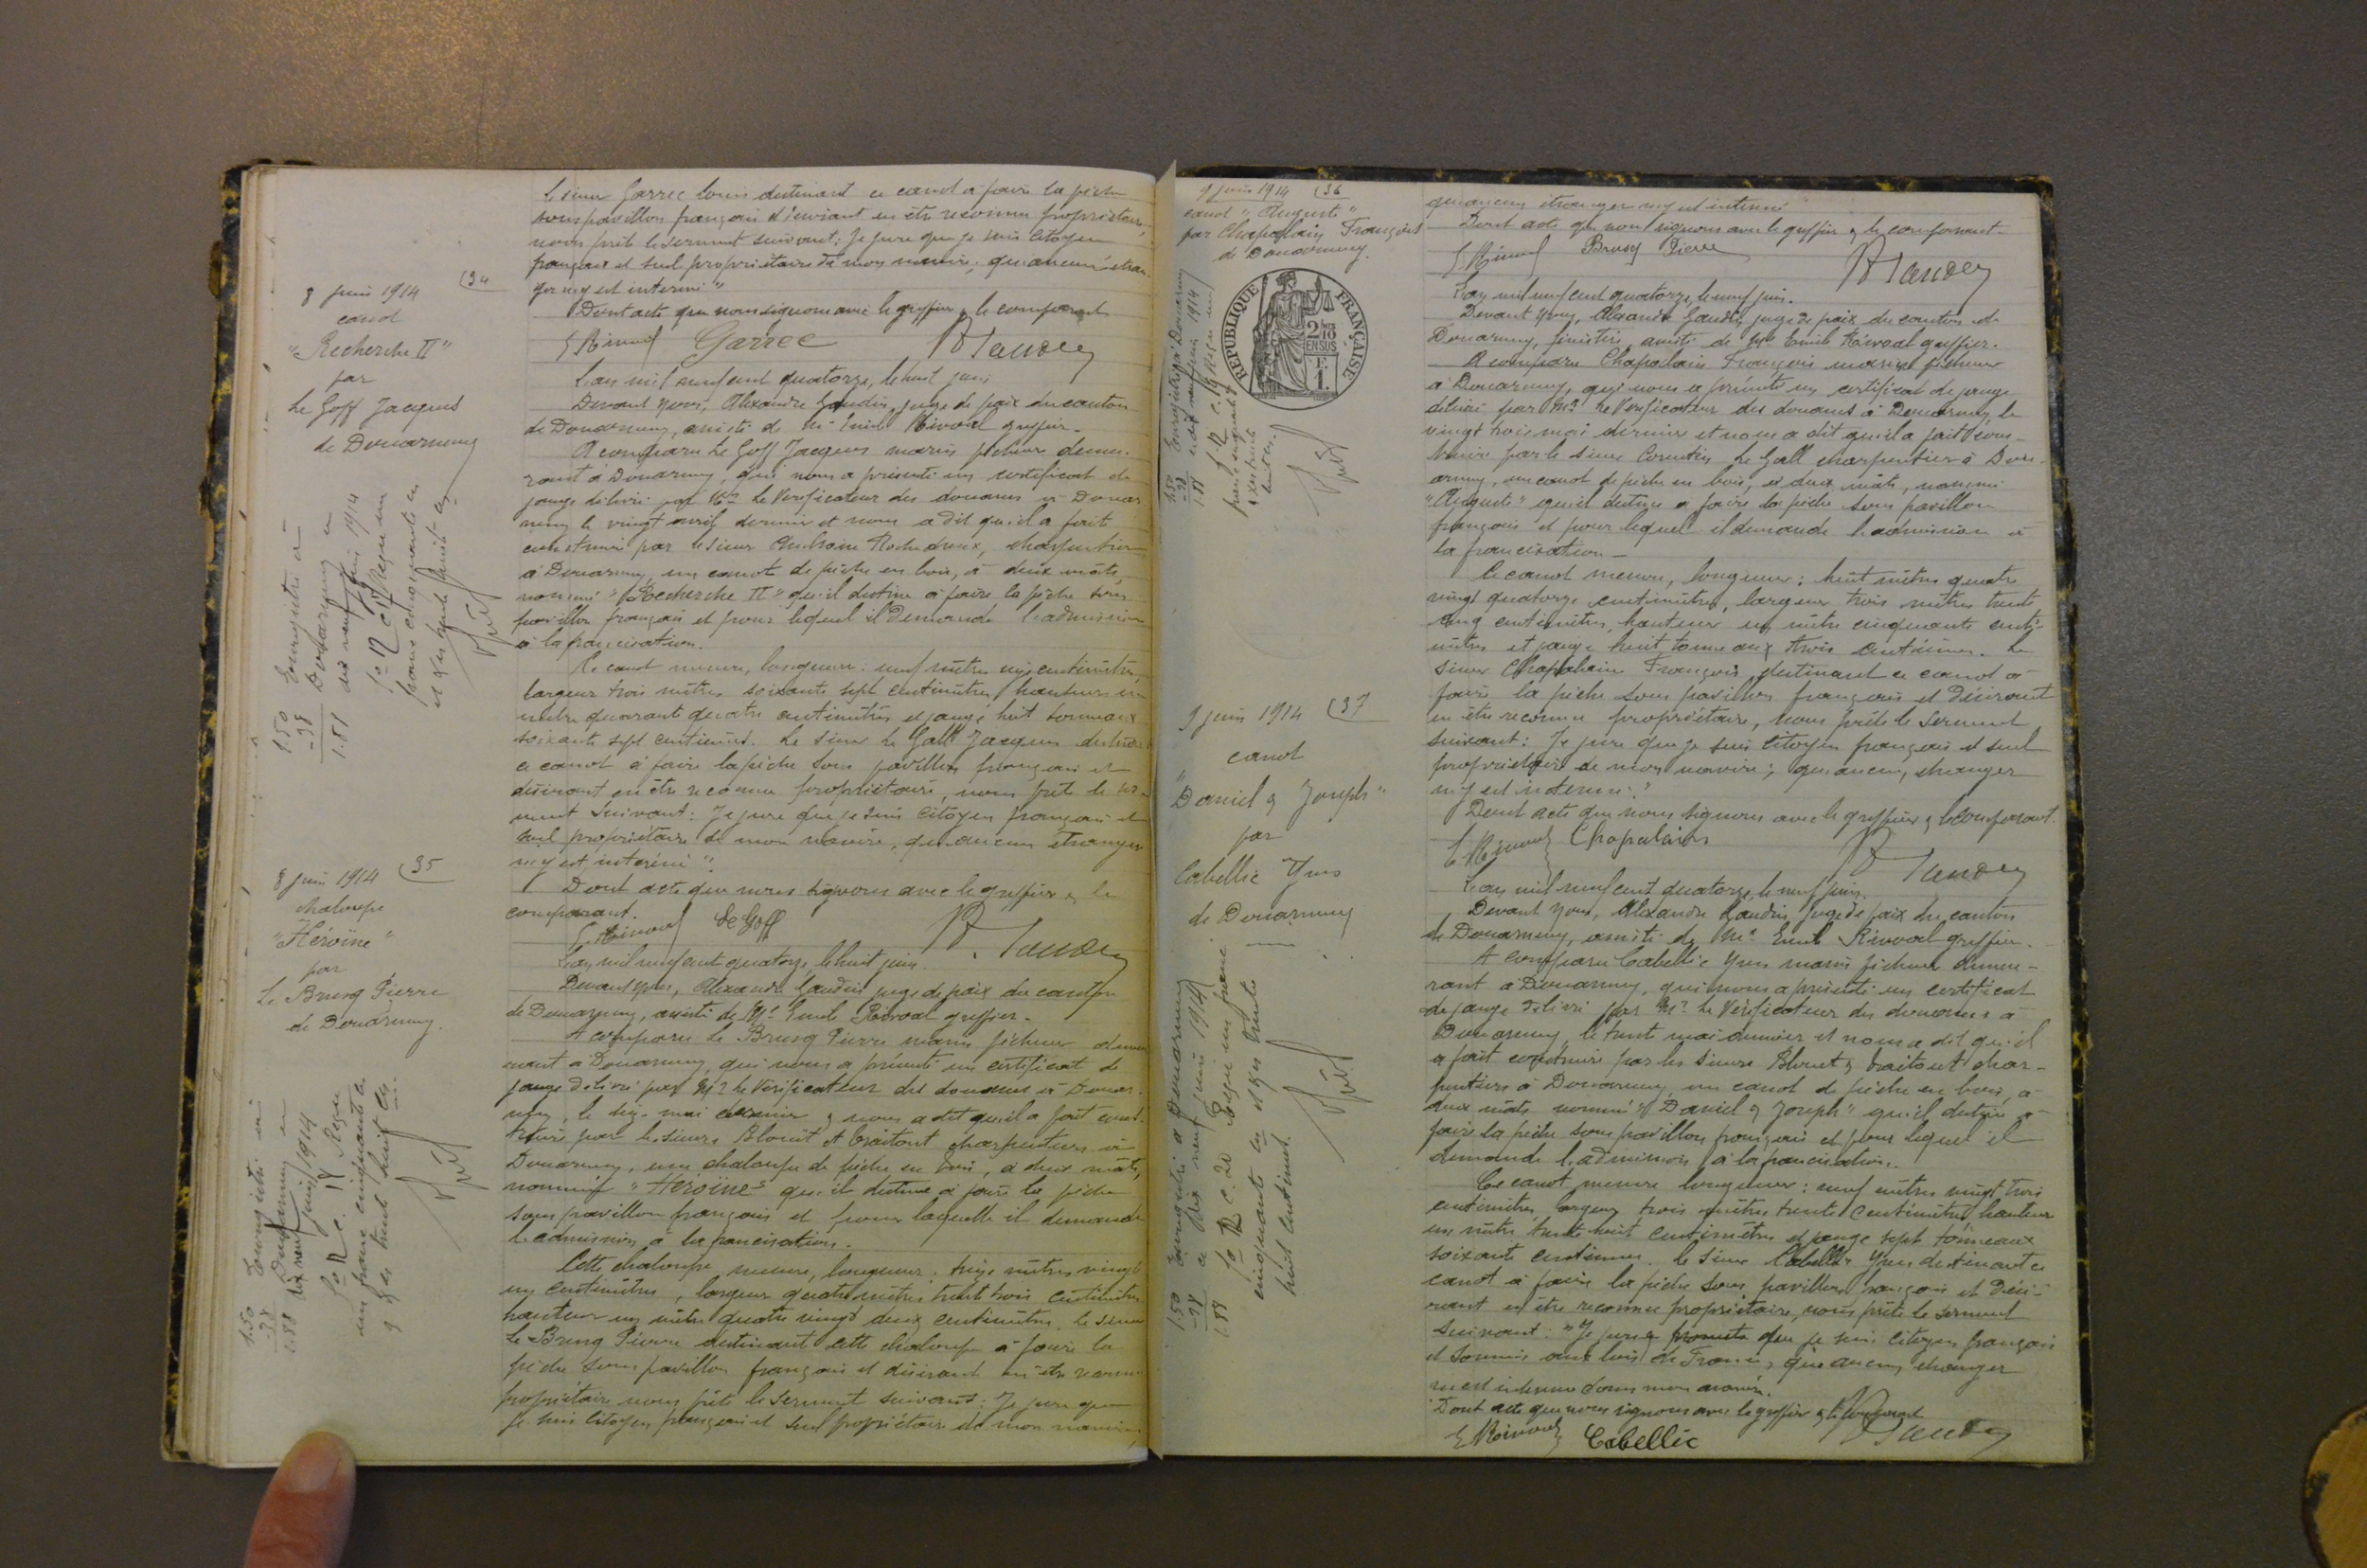 Le sieur Garrec Louis destinant ce canot à faire la pêche
sous pavillon français et désirant en être reconnu propriétaire,
nous prête le serment suivant : Je jure que je suis citoyen
français et seul propriétaire de mon navire, qu'aucun étran-
ger n'y est intéressé"
Dont acte que nous signons avec le greffier & le comparant
E Rivoal Garrec A Gaudin
8 juin 1914 (34
canot
"Recherche II"
par
Le Goff Jacques
de Douarnenez
Enregistré à
Douarnenez en
dix neuf juin 1914
fo 12 c 17 Reçu un
franc cinquante cs
et xes trente huit cs
1.50
-38
1.88
L'an mil neuf cent quatorze, le huit juin
Devant nous, Alexandre Gaudin, juge de paix du canton
de Douarnenez, assisté de Mr Emile Rivoal greffier.
A comparu Le Goff Jacques marin pêcheur demeu-
rant à Douarnenez, qui nous a présenté un certificat de
jauge délivré par Mr le Vérificateur des douanes à Douar
nenez le vingt avril dernier et nous a dit qu'il a fait
construire par le sieur charpentier
à Douarnenez, un canot de pêche en bois, à deux mâts,
nommé "Recherche II" qu'il destine à faire la pêche sous
pavillon français et pour lequel il demande l'admission
à la francisation.
Ce canot mesure, longueur : neuf mètres centimètres,
largeur trois mètres soixante sept centimètres, hauteur un
mètre quarante quatre centimètres et jauge huit tonneaux
soixante sept centièmes. Le sieur Le Goff Jacques destinant
ce canot à faire la pêche sous pavillon français et
désirant en être reconnu propriétaire, nous prête le ser-
ment suivant : Je jure que je suis citoyen français et
seul propriétaire de mon navire, qu'aucun étranger
n'y est intéressé".
Dont acte que nous signons avec le greffier & le
comparant.
E Rivoal Le Goff A Gaudin
8 juin 1914 (35
chaloupe
"Héroïne"
par
Le Brusq Pierre
de Douarnenez.
Enregistré à
Douarnenez en
dix neuf juin 1914
fo 12 c. 18 Reçu
un franc cinquante cs
& xes trente huit cs.
1.50
-38
1.88
L'an mil neuf cent quatorze, le huit juin.
Devant nous, Alexandre Gaudin juge de paix du canton
de Douarnenez, assisté de Mr Emile Rivoal greffier.
A comparu Le Brusq Pierre marin pêcheur demeu
rant à Douarnenez, qui nous a présenté un certificat de
jauge délivré par Mr le Vérificateur des douanes à Douar
nenez, le dix mai dernier & nous a dit qu'il a fait cons-
truire par les sieurs Blouët et Craitout charpentiers à
Douarnenez, une chaloupe de pêche en bois, à deux mâts,
nommée "Héroïne" qu'il destine à faire la pêche
sous pavillon français et pour laquelle il demande
l'admission à la francisation.
Cette chaloupe mesure, longueur : treize mètres vingt
un centimètres, largeur quatre mètres trente trois centimètres
hauteur un mètre quatre vingt deux centimètres. Le sieur
Le Brusq Pierre destinant cette chaloupe à faire la
pêche sous pavillon français et désirant en être reconnu
propriétaire nous prête le serment suivant : Je jure que
je suis citoyen français et seul propriétaire de mon navire,
qu'aucun étranger n'y est intéressé
Dont acte que nous signons avec le greffier & le comparant
E Rivoal Brusq Pierre A Gaudin
9 juin 1914 (36
canot "Auguste"
par Chapalain François
de Douarnenez.
REPUBLIQUE FRANÇAISE
2/10 EN SUS
F.
1.
Enregistré à Douarnenez
en dix neuf juin 1914
fo 12 c. 19 Reçu un
franc cinquante cs
& xes trente
huit cs.
1.50
-38
1.88
L'an mil neuf cent quatorze, le neuf juin.
Devant nous, Alexandre Gaudin juge de paix du canton de
Douarnenez, finistère, assisté de Mr Emile Rivoal greffier.
A comparu Chapalain François marin pêcheur
à Douarnenez, qui nous a présenté un certificat de jauge
délivré par Mr le Vérificateur des douanes à Douarnenez le
vingt trois mai dernier et nous a dit qu'il a fait cons-
truire par le sieur Corentin Le Gall charpentier à Dou-
arnenez, un canot de pêche en bois, à deux mâts, nommé
"Auguste" qu'il destine à faire la pêche sous pavillon
français et pour lequel il demande l'admission à
la francisation —
Ce canot mesure, longueur : huit mètres quatre
vingt quatorze centimètres, largeur trois mètres trente
cinq centimètres, hauteur un mètre cinquante centi-
mètres et jauge huit tonneaux trois centièmes. Le
sieur Chapalain François, destinant ce canot à
faire la pêche sous pavillon français et désirant
en être reconnu propriétaire, nous prête le serment
suivant : Je jure que je suis citoyen français et seul
propriétaire de mon navire ; qu'aucun, étranger
n'y est intéressé."
Dont acte que nous signons avec le greffier & le comparant.
E Rivoal Chapalain A Gaudin
9 juin 1914 (37
canot
"Daniel & Joseph"
par
Cabellic Yves
de Douarnenez
Enregistré à Douarnenez
en dix neuf juin 1914
fo 12 c. 20 Reçu un franc
cinquante cs et xes trente
huit centimes.
1.50
-38
1.88
L'an mil neuf cent quatorze, le neuf juin.
Devant nous, Alexandre Gaudin, juge de paix du canton
de Douarnenez, assisté de Mr Emile Rivoal greffier.
A comparu Cabellic Yves marin pêcheur demeu-
rant à Douarnenez, qui nous a présenté un certificat
de jauge délivré par Mr le Vérificateur des douanes à
Douarnenez, le trente mai dernier et nous a dit qu'il
a fait construire par les sieurs Blouet & Craitout char-
pentiers à Douarnenez, un canot de pêche en bois, à
deux mâts nommé "Daniel & Joseph" qu'il destine à
faire la pêche sous pavillon français et pour lequel il
demande l'admission à la francisation.
Ce canot mesure longueur : neuf mètres vingt trois
centimètres, largeur trois mètres trente centimètres hauteur
un mètre trente huit centimètres et jauge sept tonneaux
soixante centièmes. Le sieur Cabellic Yves destinant ce
canot à faire la pêche sous pavillon français et dési-
rant en être reconnu propriétaire, nous prête le serment
suivant : "Je jure que je suis citoyen français
et soumis aux lois de France, que aucun étranger
n'est intéressé dans mon navire.
Dont acte que nous signons avec le greffier & le comparant
E Rivoal Cabellic A Gaudin